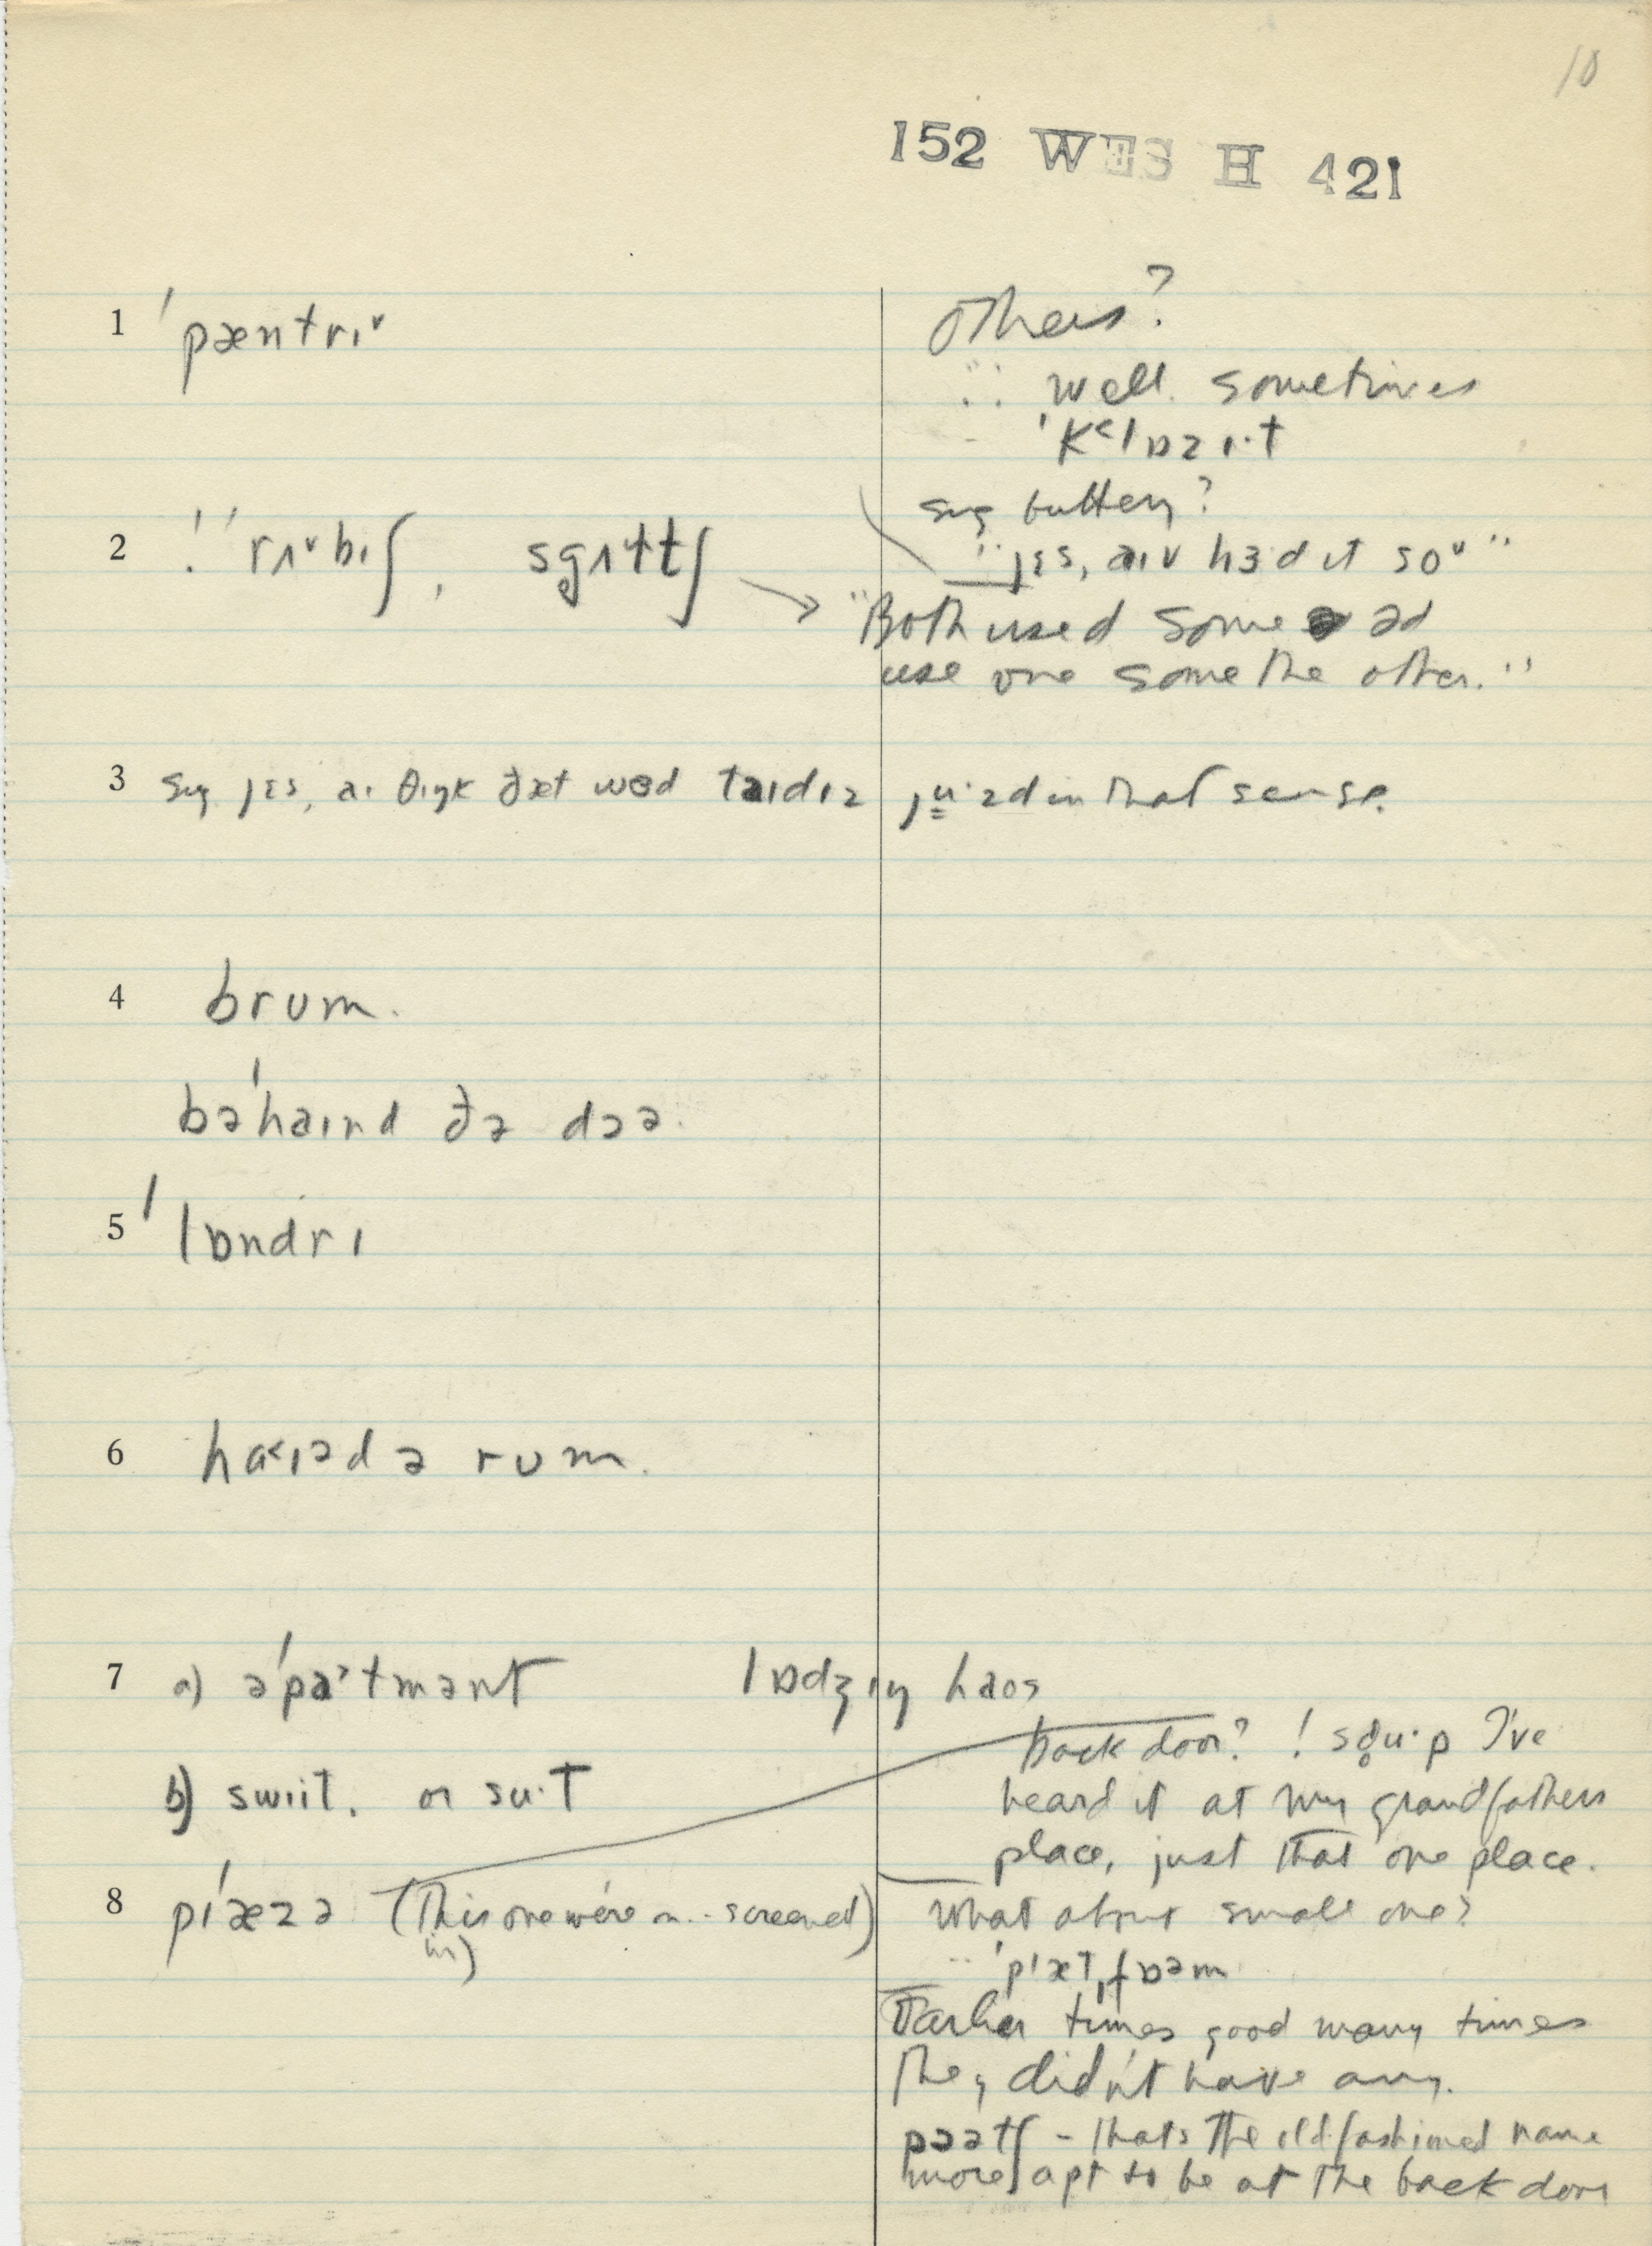 10
152 WES H 421
1 ˈpæntrɪ˅
Others?
": well. sometimes
ˈk˂lɒzɪ·t
sug buttery?
2 !ˈ rʌ˅bɪʃ,
"jɛs, aɪv hɜ·d ɪt so˅"
"Both used some əd
use one some the other."
3 sug jɛs, aɪ θɪŋk ðæt wəd taɪdɪz ju·zd in that sense.
4 brum.
bəˈhaɪnd ðə dɔə.
5 ˈlɒndrɪ
6 ha˂ɪəd ə rum.
7 a) əˈpa˃tmənt lɒdʒɪŋ haos
back door? ! I've
b) swiit, or su·t
heard it at my grandfathers
place, just that one place.
8 pɪˈæzə (this one we're on... screened in)
What about small one?
"ˈplætˌfɒəm
Earlier times good many times
they didn't have any.
pɔətʃ - that's the old fashioned name
more apt to be at the back door